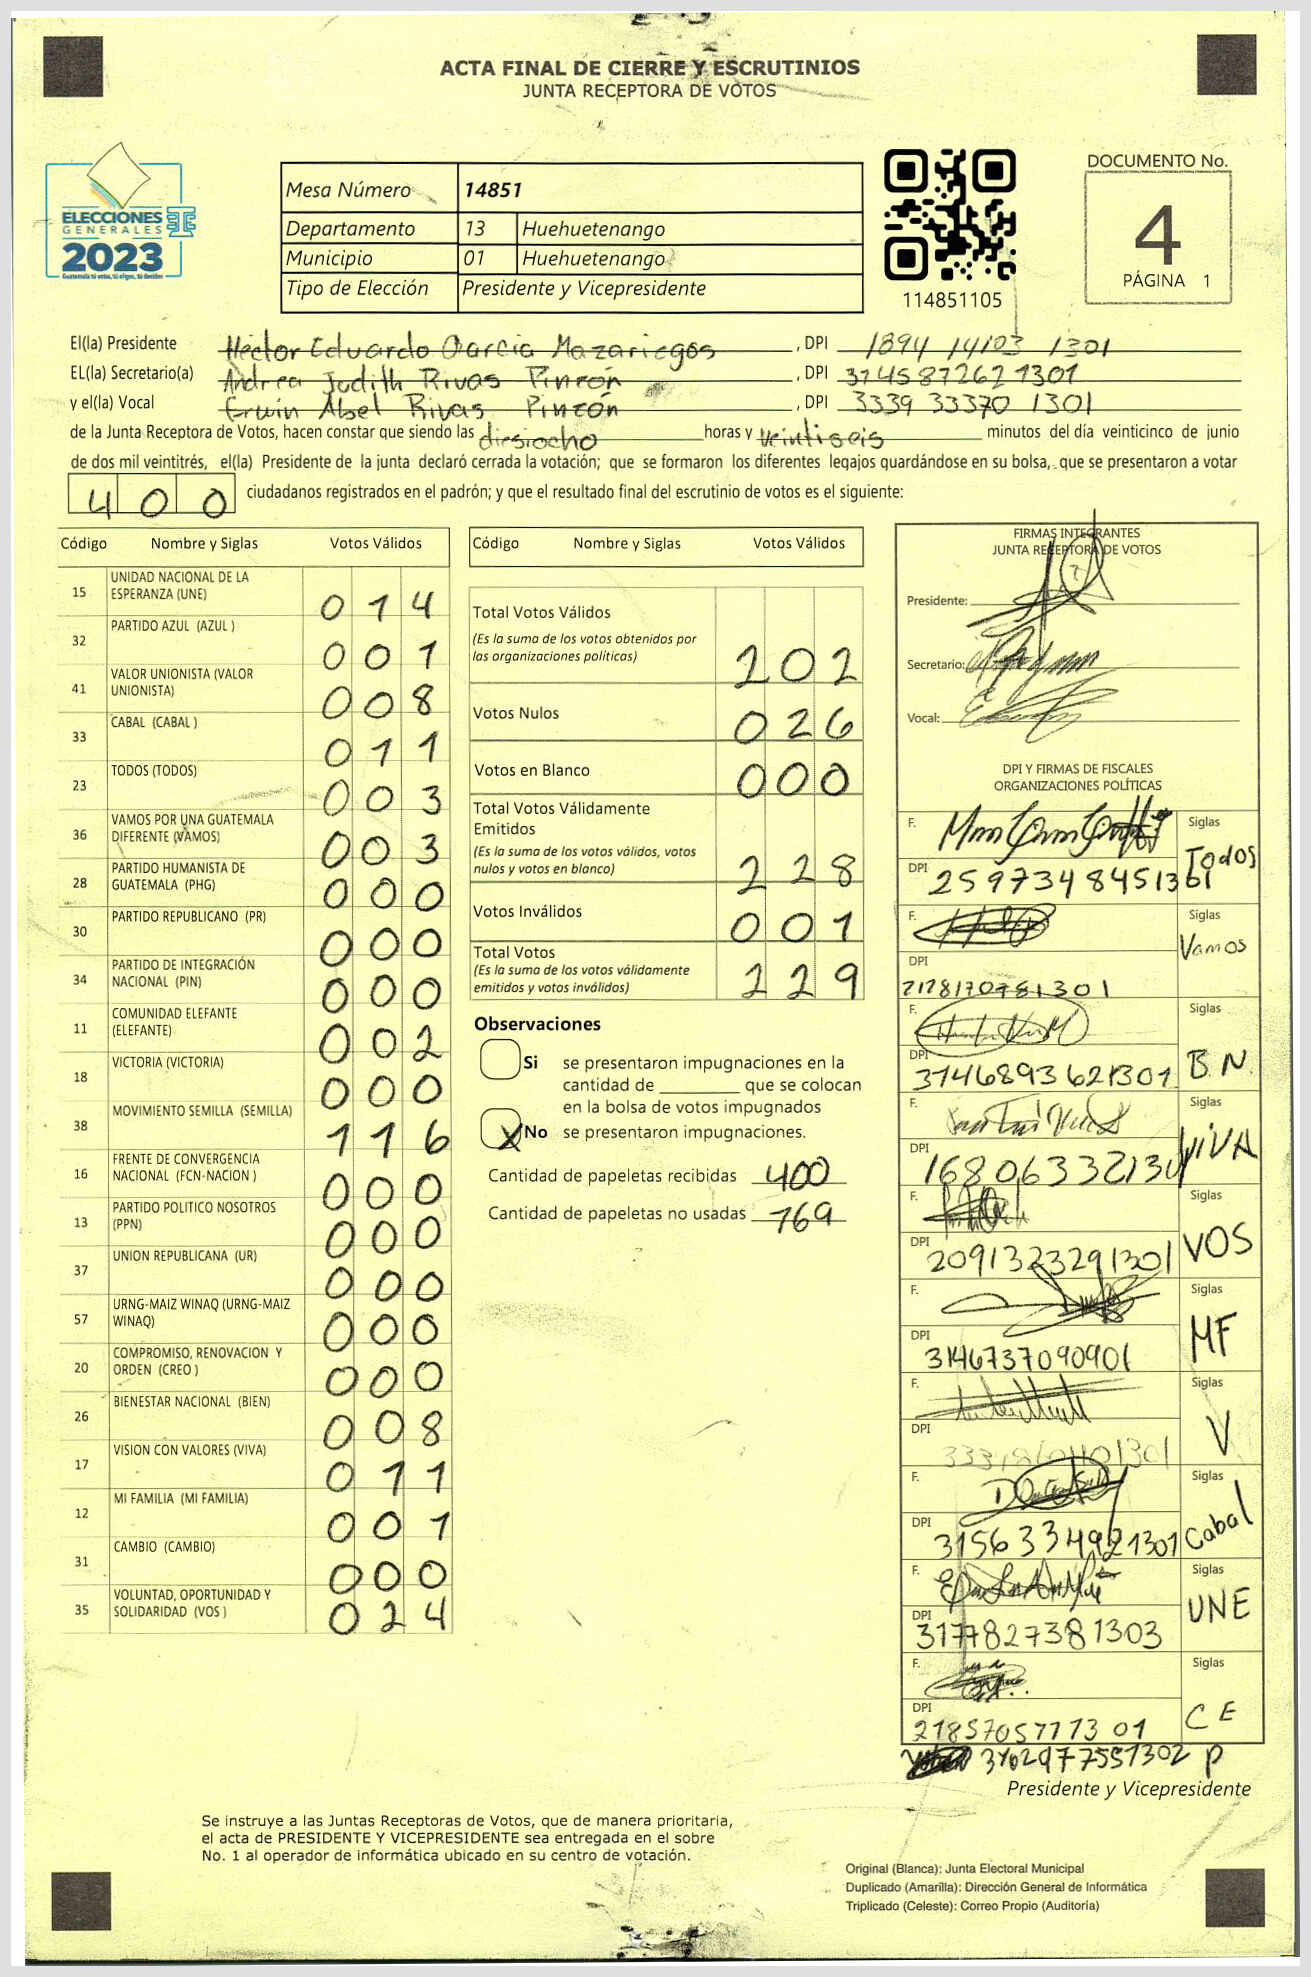 ACTA FINAL DE CIERRE Y ESCRUTINIOS
JUNTA RECEPTORA DE VOTOS
ELECCIONES
GENERALES
2023
Guatemala tú votas, tú eliges, tú decides
Mesa Número 14851
Departamento 13 Huehuetenango
Municipio 01 Huehuetenango
Tipo de Elección Presidente y Vicepresidente
114851105
DOCUMENTO No.
4
PÁGINA 1
El(la) Presidente Héctor Eduardo García Mazariegos , DPI 1894 14103 1301
EL(la) Secretario(a) Andrea Judith Rivas Pinzón , DPI 3145872621301
y el(la) Vocal Erwin Abel Rivas Pinzón , DPI 3339 33370 1301
de la Junta Receptora de Votos, hacen constar que siendo las diesiocho horas y veintiseis minutos del día veinticinco de junio
de dos mil veintitrés, el(la) Presidente de la junta declaró cerrada la votación; que se formaron los diferentes legajos quardándose en su bolsa, que se presentaron a votar
400 ciudadanos registrados en el padrón; y que el resultado final del escrutinio de votos es el siguiente:
Código Nombre y Siglas Votos Válidos
15 UNIDAD NACIONAL DE LA ESPERANZA (UNE) 014
32 PARTIDO AZUL (AZUL ) 001
41 VALOR UNIONISTA (VALOR UNIONISTA) 008
33 CABAL (CABAL ) 011
23 TODOS (TODOS) 003
36 VAMOS POR UNA GUATEMALA DIFERENTE (VAMOS) 003
28 PARTIDO HUMANISTA DE GUATEMALA (PHG) 000
30 PARTIDO REPUBLICANO (PR) 000
34 PARTIDO DE INTEGRACIÓN NACIONAL (PIN) 000
11 COMUNIDAD ELEFANTE (ELEFANTE) 002
18 VICTORIA (VICTORIA) 000
38 MOVIMIENTO SEMILLA (SEMILLA) 116
16 FRENTE DE CONVERGENCIA NACIONAL (FCN-NACION ) 000
13 PARTIDO POLITICO NOSOTROS (PPN) 000
37 UNION REPUBLICANA (UR) 000
57 URNG-MAIZ WINAQ (URNG-MAIZ WINAQ) 000
20 COMPROMISO, RENOVACION Y ORDEN (CREO ) 000
26 BIENESTAR NACIONAL (BIEN) 008
17 VISION CON VALORES (VIVA) 011
12 MI FAMILIA (MI FAMILIA) 001
31 CAMBIO (CAMBIO) 000
35 VOLUNTAD, OPORTUNIDAD Y SOLIDARIDAD (VOS ) 024
Código Nombre y Siglas Votos Válidos
Total Votos Válidos
(Es la suma de los votos obtenidos por
las organizaciones políticas) 202
Votos Nulos 026
Votos en Blanco 000
Total Votos Válidamente
Emitidos
(Es la suma de los votos válidos, votos
nulos y votos en blanco) 228
Votos Inválidos 001
Total Votos
(Es la suma de los votos válidamente
emitidos y votos inválidos) 229
Observaciones
Si se presentaron impugnaciones en la
cantidad de ________ que se colocan
en la bolsa de votos impugnados
X No se presentaron impugnaciones.
Cantidad de papeletas recibidas 400
Cantidad de papeletas no usadas 769
FIRMAS INTEGRANTES
JUNTA RECEPTORA DE VOTOS
Presidente:
Secretario:
Vocal:
DPI Y FIRMAS DE FISCALES
ORGANIZACIONES POLÍTICAS
F. Siglas
Todos
DPI 2597348451301
F. Siglas
Vamos
DPI
2128170781301
F. Siglas
B.N.
DPI 3146893621301
F. Siglas
VIVA
DPI
F. Siglas
VOS
DPI 2091323291301
F. Siglas
MF
DPI
3146737090901
F. Siglas
V
DPI
F. Siglas
Cabal
DPI 3156334921301
F. Siglas
UNE
DPI 3177827381303
F. Siglas
CE
DPI
2185705771301
3402977551302 P
Presidente y Vicepresidente
Se instruye a las Juntas Receptoras de Votos, que de manera prioritaria,
el acta de PRESIDENTE Y VICEPRESIDENTE sea entregada en el sobre
No. 1 al operador de informática ubicado en su centro de votación.
Original (Blanca): Junta Electoral Municipal
Duplicado (Amarilla): Dirección General de Informática
Triplicado (Celeste): Correo Propio (Auditoría)